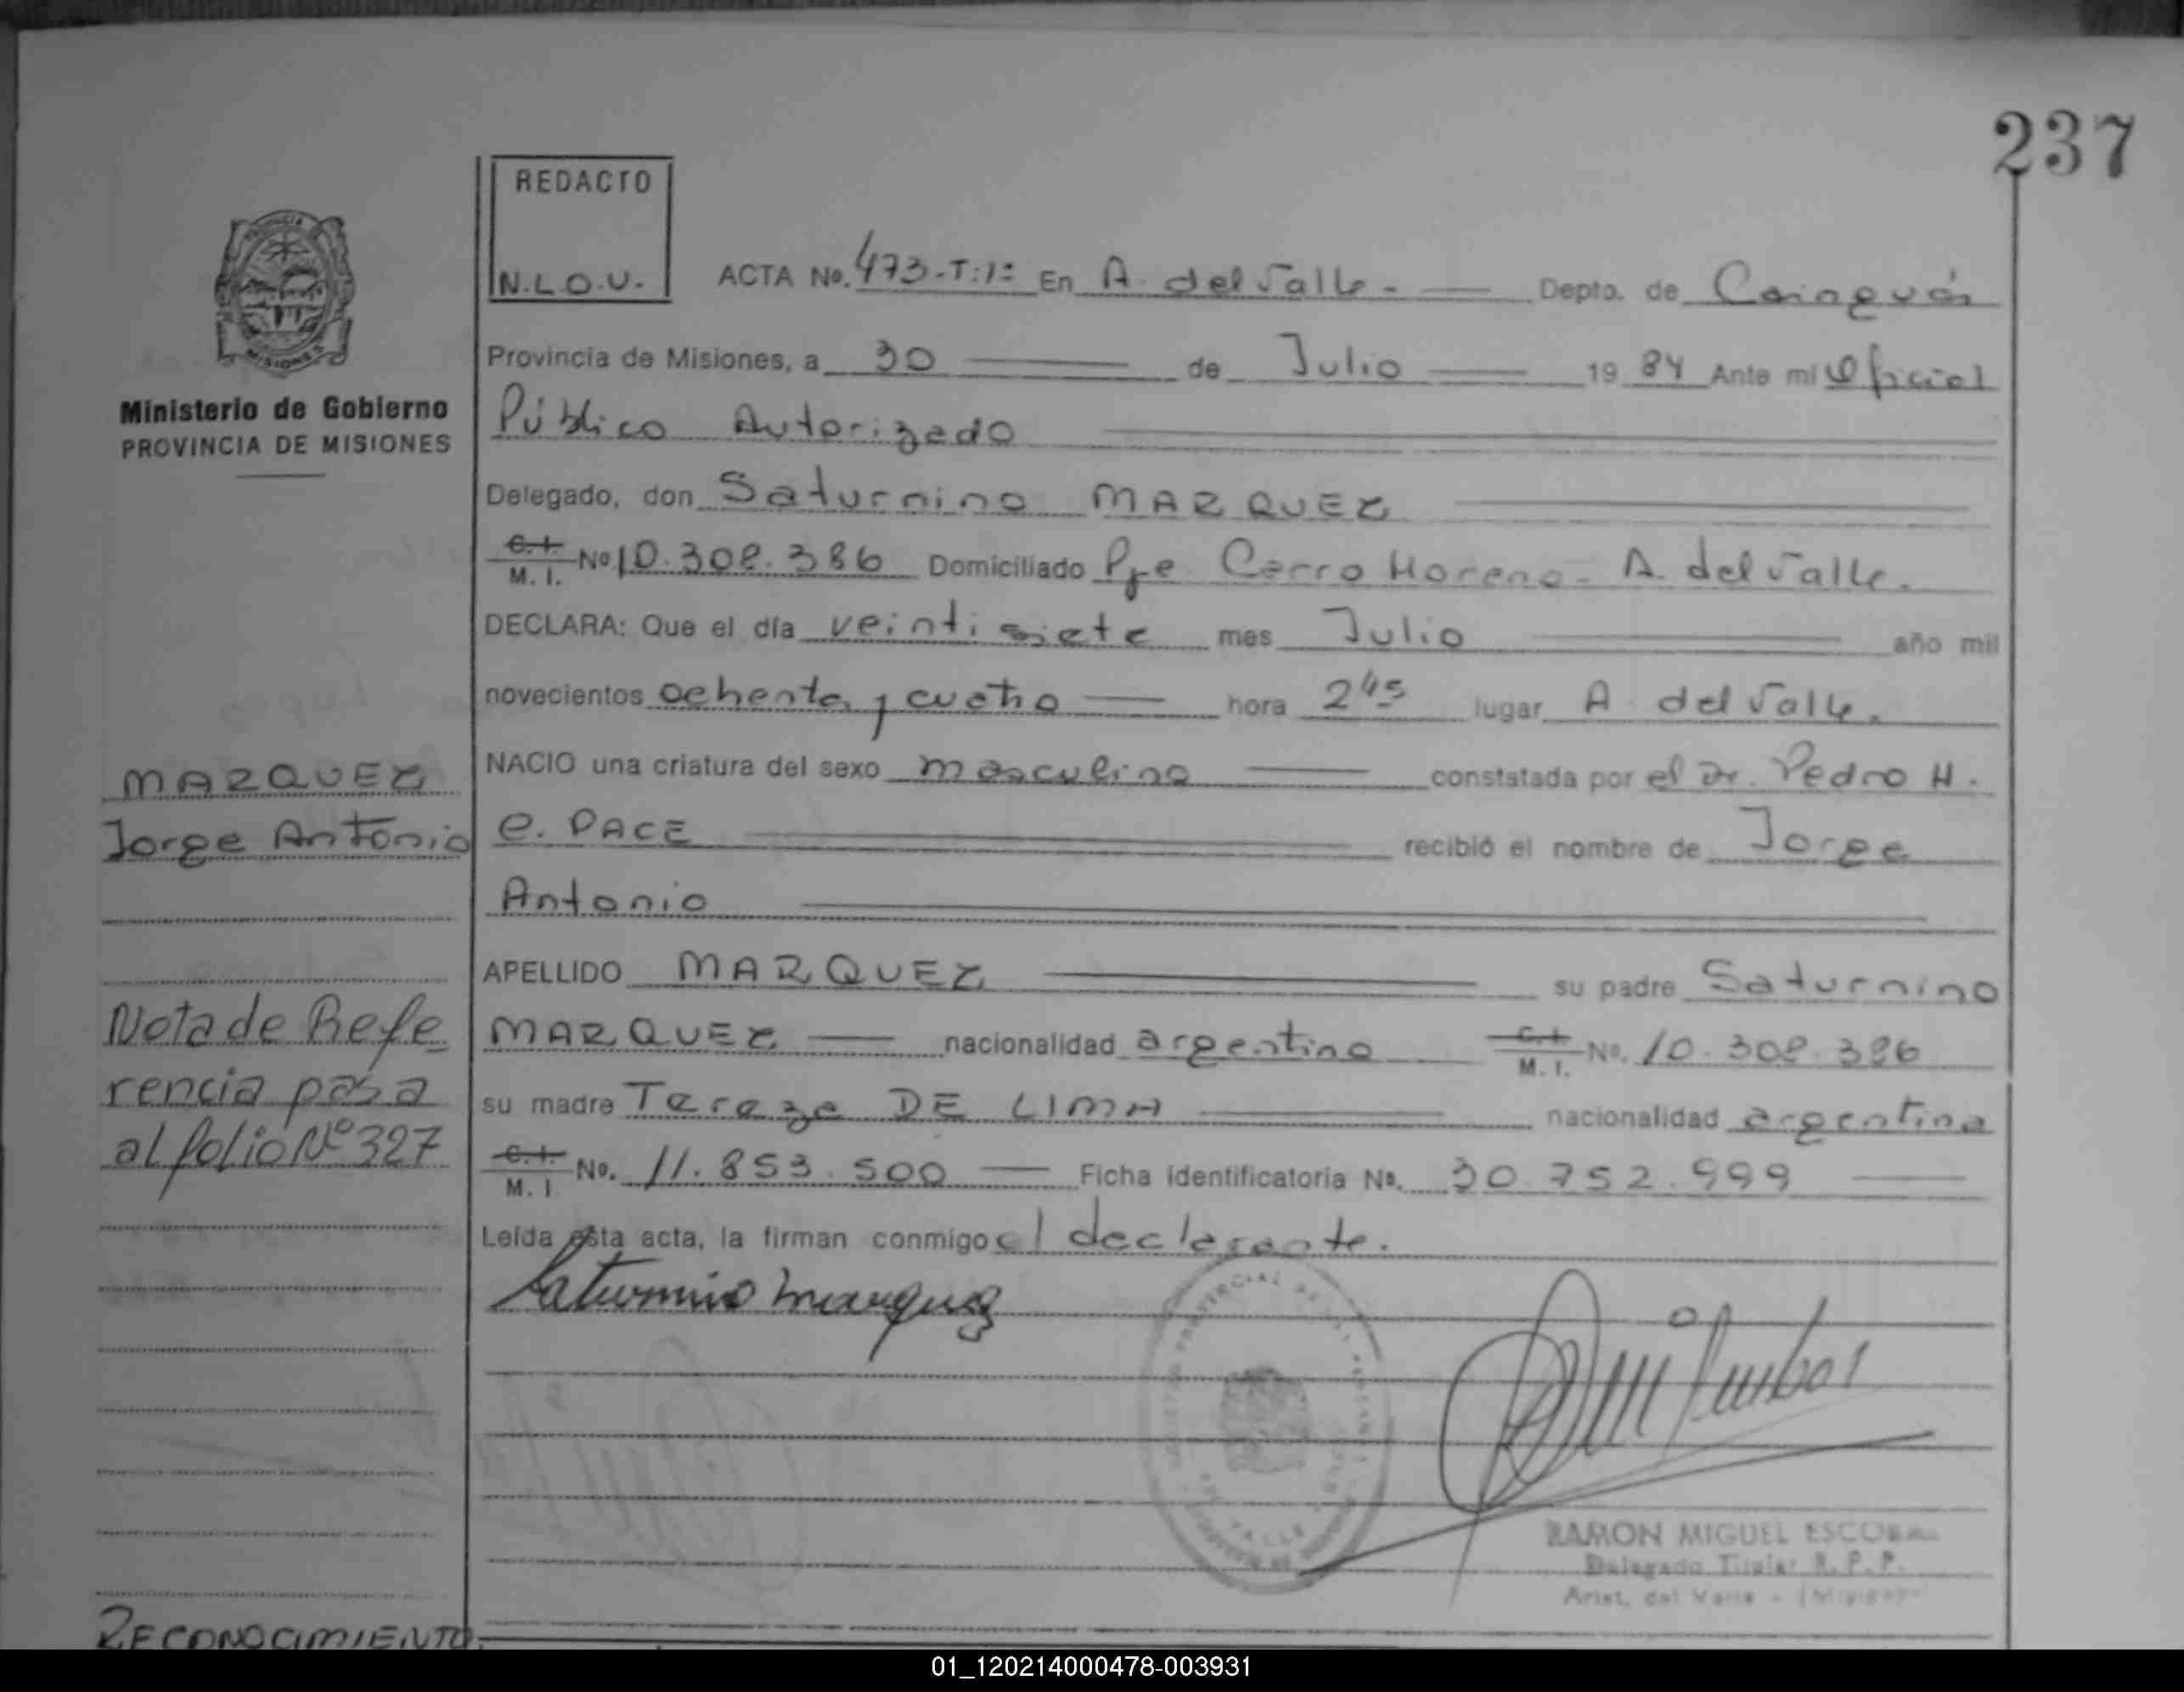 237
REDACTO
N.L.O.U.
ACTA No. 473-T:1º En A. del Valle - Depto. de Cainguás
Provincia de Misiones, a 30 de Julio 19 84 Ante mi Oficial
Público Autorizado
Ministerio de Gobierno
PROVINCIA DE MISIONES
Delegado, don Saturnino MARQUEZ
C.I. M. I. No 10.308.386 Domiciliado Pje Cerro Moreno - A. del Valle.
DECLARA: Que el día veintisiete mes Julio año mil
novecientos ochenta y cuatro hora 2 45 lugar A. del Valle.
NACIO una criatura del sexo masculino constatada por el Dr. Pedro H.
e. PACE recibió el nombre de Jorge
Antonio
MARQUEZ
Jorge Antonio
APELLIDO MARQUEZ su padre Saturnino
MARQUEZ nacionalidad argentino C.I. M. I. No. 10.308.386
su madre Tereza DE LIMA nacionalidad argentina
C.I. M. I. No. 11.853.500 Ficha identificatoria No. 30.752.999
Nota de Refe
rencia pasa
al folio Nº 327
Leída esta acta, la firman conmigo el declarante.
Saturnino Marquez
RAMON MIGUEL ESCOBA
Delegado Titular R. P. P.
Arist. del Valle - (Misiones)
RECONOCIMIENTO
01_120214000478-003931